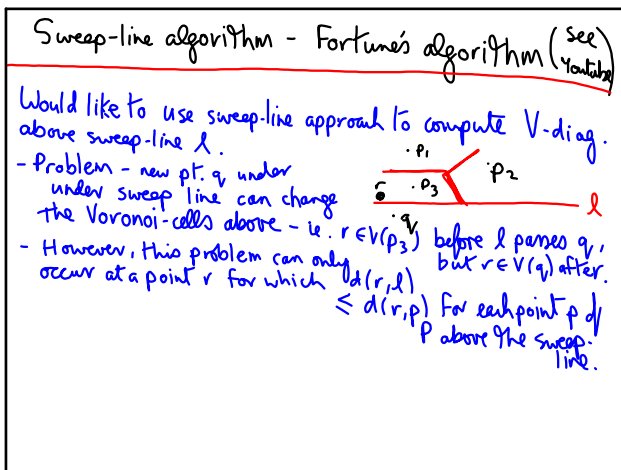 Sweep-line algorithm - Fortune's algorithm (see Youtube)
Would like to use sweep-line approach to compute V-diag.
above sweep-line l.
- Problem - new pt. q under
under sweep line can change
the Voronoi-cells above - ie. r ∈ V(p3) before l passes q,
but r ∈ V(q) after.
- However, this problem can only
occur at a point r for which d(r,l)
≤ d(r,p) for each point p of
P above the sweep-
line.
p1
p2
p3
r
l
q